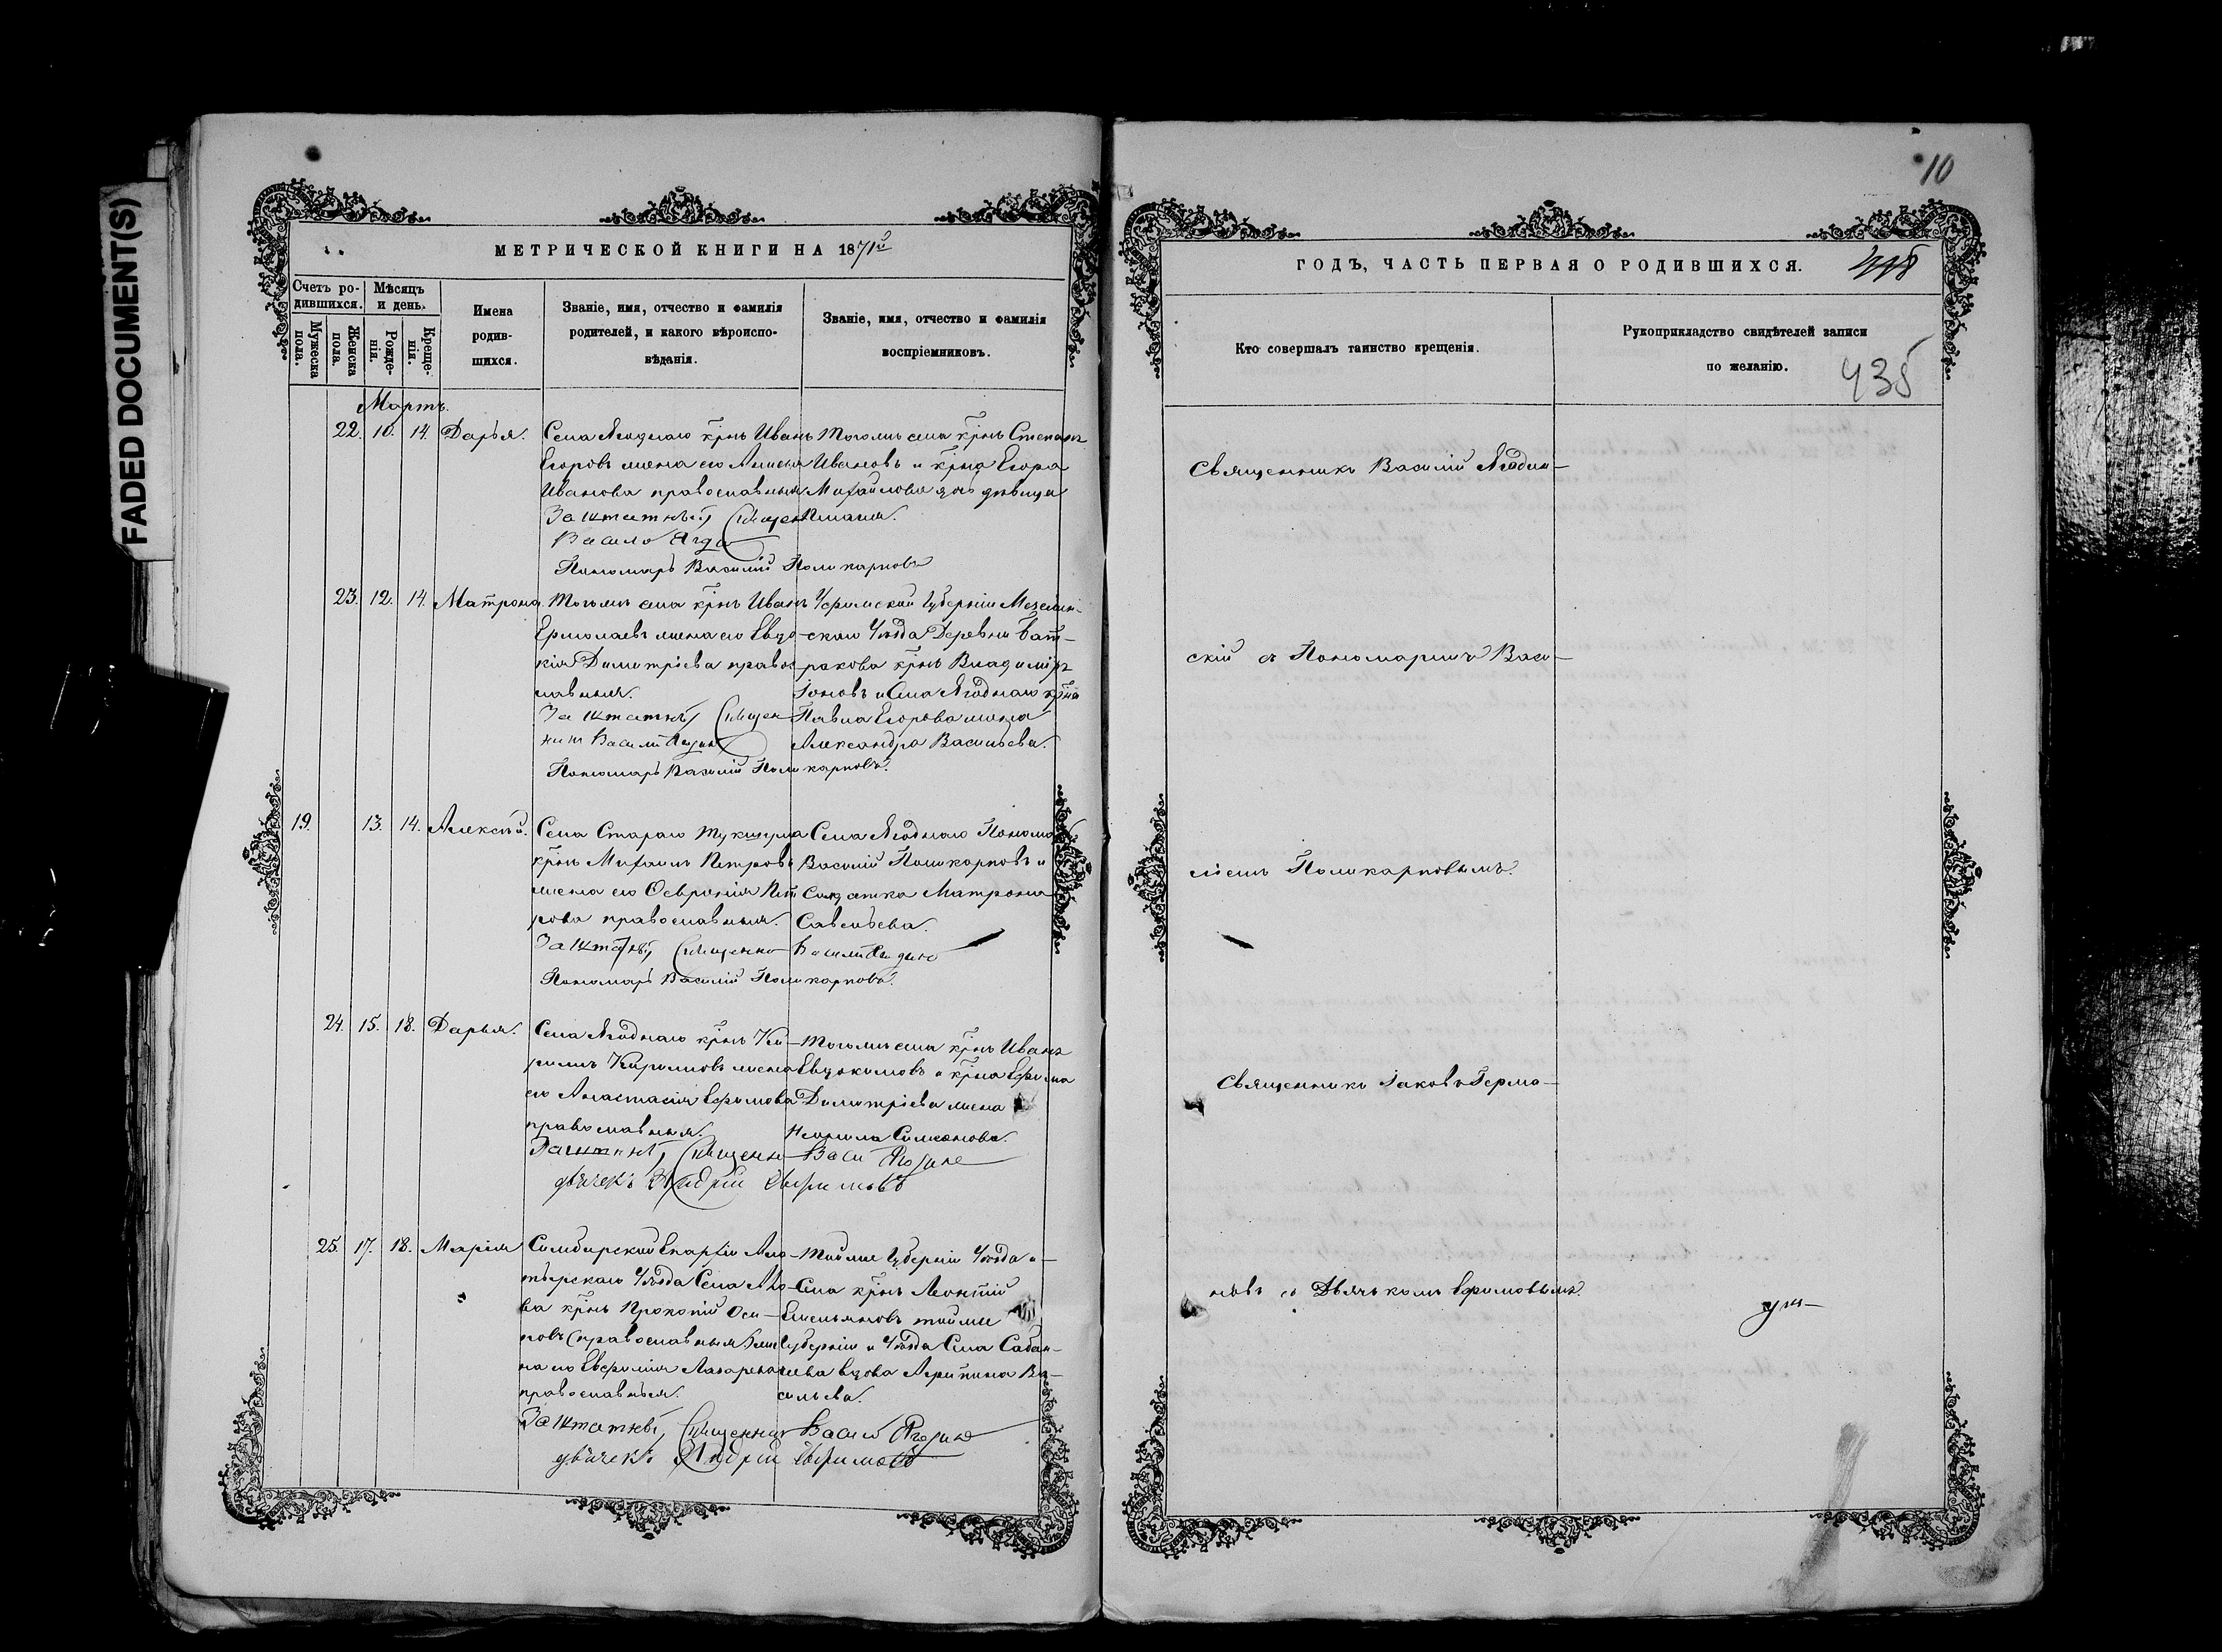 FADED DOCUMENT(S)
МЕТРИЧЕСКОЙ КНИГИ НА 1871й
Счетъ ро-
дившихся.
Мѣсяцъ
и день.
Мужеска
пола.
Женска
пола.
Рожде-
нія.
Креще-
нія.
Имена
родив-
шихся.
Званіе, имя, отчество и фамилія
родителей, и какого вѣроиспо-
вѣданія.
Званіе, имя, отчество и фамилія
воспріемниковъ.
Мартъ.
22. 10. 14. Дарья.
Села Ягоднаго крнъ Иванъ
Егоровъ жена его Анисья
Иванова православныя
Заштатный Священ
Пономарь Василій Поликарповъ
Тогоже села крнъ Степанъ
Ивановъ и крна Егора
Михайлова дочь дѣвица
23. 12. 14. Матрона.
Тогоже села крнъ Иванъ
Ермолаевъ жена его Евдо-
кія Димитріева правос-
лавныя.
Заштатный Священ-
никъ Василій
Пономарь Василій Поликарповъ.
Уфимской Губерніи Мензелин-
скаго Уѣзда Деревни Бат-
ракова крнъ Владиміръ
Іоновъ и Села Ягоднаго крна
Павла Егорова жена
Александра Васильева.
19. 13. 14. Алексѣй.
Села Стараго
крнъ Михаилъ Петровъ
жена его Февронія Пет
рова православныя.
Заштатный Священно
Пономарь Василій Поликарповъ.
Села Ягоднаго Пономарь
Василій Поликарповъ и
Солдатка Матрона
Савельева.
24. 15. 18. Дарья.
Села Ягоднаго крнъ Ки-
рилъ Кириловъ жена
его Анастасія Ефимова
православныя.
Заштатный Священн Васи
дьячекъ Андрей Ефимовъ
Тогоже села крнъ Иванъ
Евдокимовъ и крна Ефима
Димитріева жена
Неонила Симеонова.
25. 17. 18. Марія
Симбирской Епархіи Ала-
тырскаго Уѣзда Села
крнъ Прокопій Оси-
повъ (православныя) жен
на его Евфимія Лазарева
православныя.
Заштатный Священник Васил
дьячекъ Андрей Ефимовъ
Тойже Губерніи Уѣзда и
Села крнъ Леонтій
Емельяновъ тойже
Губерніи и Уѣзда Села Сабан-
чеева вдова Агрипина Ва-
сильева.
10
ГОДЪ, ЧАСТЬ ПЕРВАЯ О РОДИВШИХСЯ.
Кто совершалъ таинство крещенія.
Рукоприкладство свидѣтелей записи
по желанію.
435
Священникъ Василій Ягодин-
скій съ Пономаремъ Васи-
ліемъ Поликарповымъ.
Священникъ Іаковъ Гермо-
новъ съ Дьячкомъ Ефимовымъ